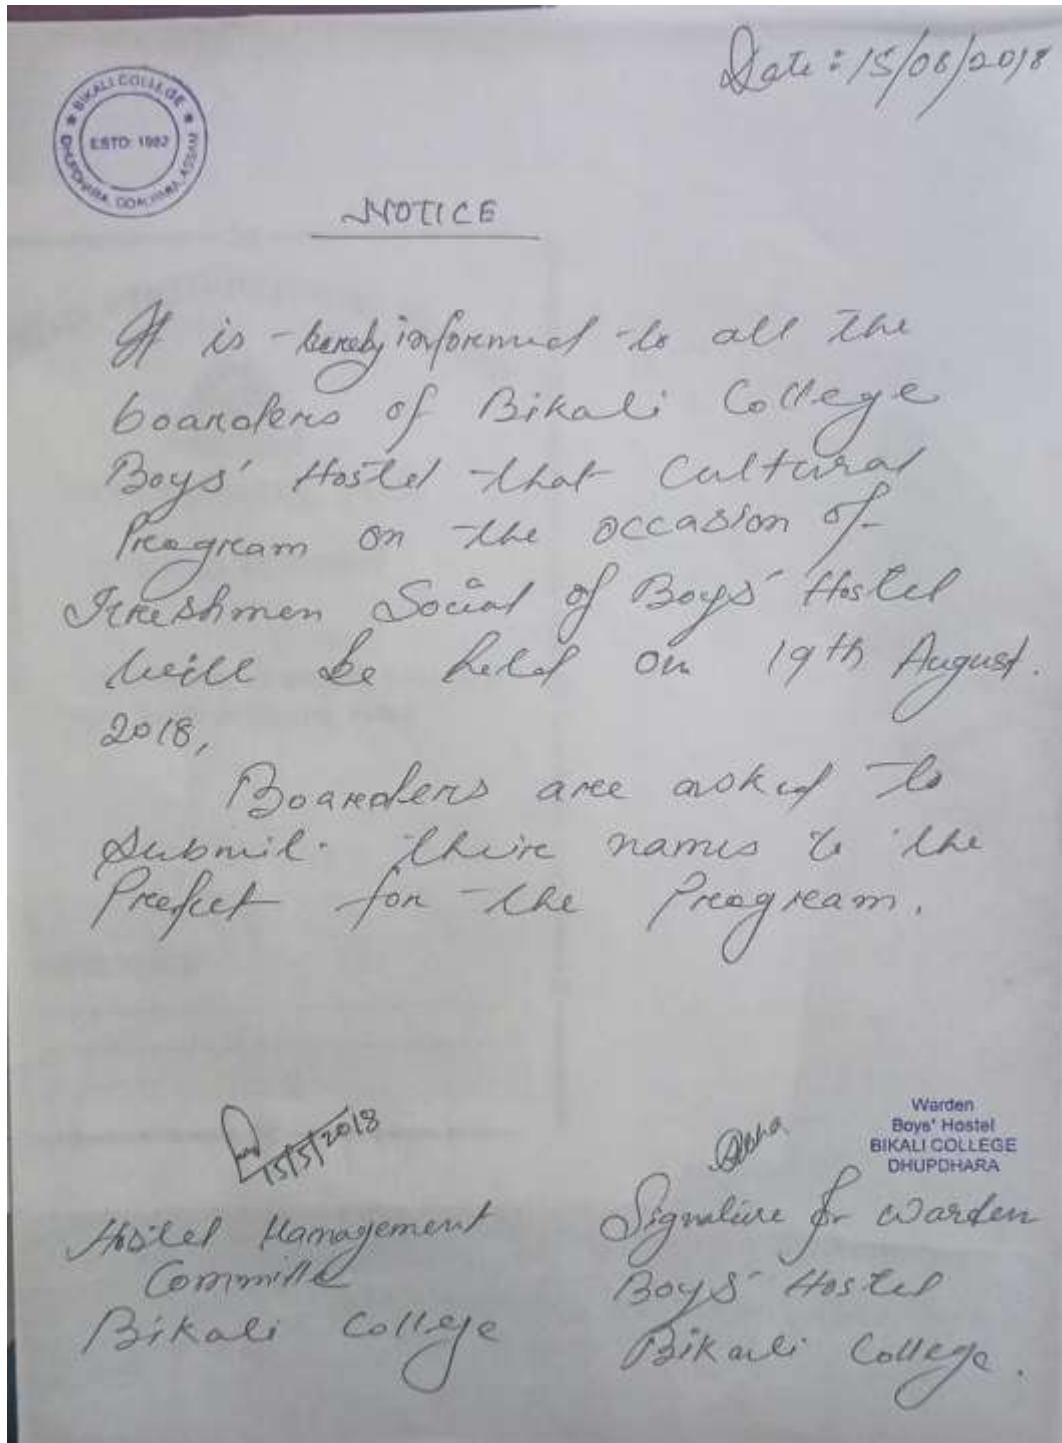 Date: 15/08/2018
★ BIKALI COLLEGE ★
DHUPDHARA, GOALPARA, ASSAM
ESTD: 1982
NOTICE
It is hereby informed to all the
boarders of Bikali College
Boys' Hostel that Cultural
Program on the occasion of
Freshmen Social of Boys' Hostel
will be held on 19th August.
2018,
Boarders are asked to
Submit. their names to the
Prefect for the Program.
15/5/2018
Warden
Boys' Hostel
BIKALI COLLEGE
DHUPDHARA
Hostel Management
Committe
Bikali College
Signature of Warden
Boys' Hostel
Bikali College.